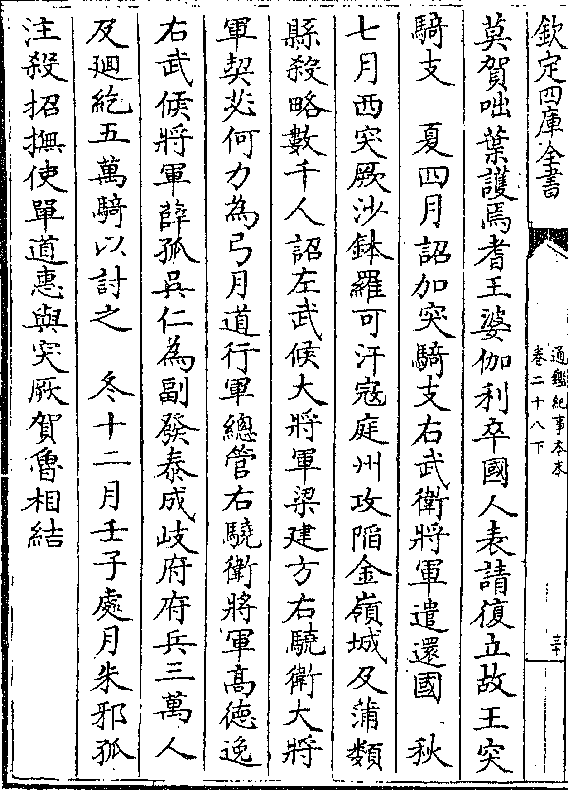 欽定四庫全書
通鑑紀事本末
卷二十八下
莫賀咄葉護焉耆王婆伽利卒國人表請復立故王突
騎支　夏四月詔加突騎支右武衛將軍遣還國　秋
七月西突厥沙鉢羅可汗寇庭州攻陷金嶺城及蒲類
縣殺略數千人詔左武候大將軍梁建方右驍衛大將
軍契苾何力為弓月道行軍總管右驍衛將軍高德逸
右武候將軍薛孤吳仁為副發秦成岐府府兵三萬人
及廻紇五萬騎以討之　冬十二月壬子處月朱邪孤
注殺招撫使單道惠與突厥賀魯相結